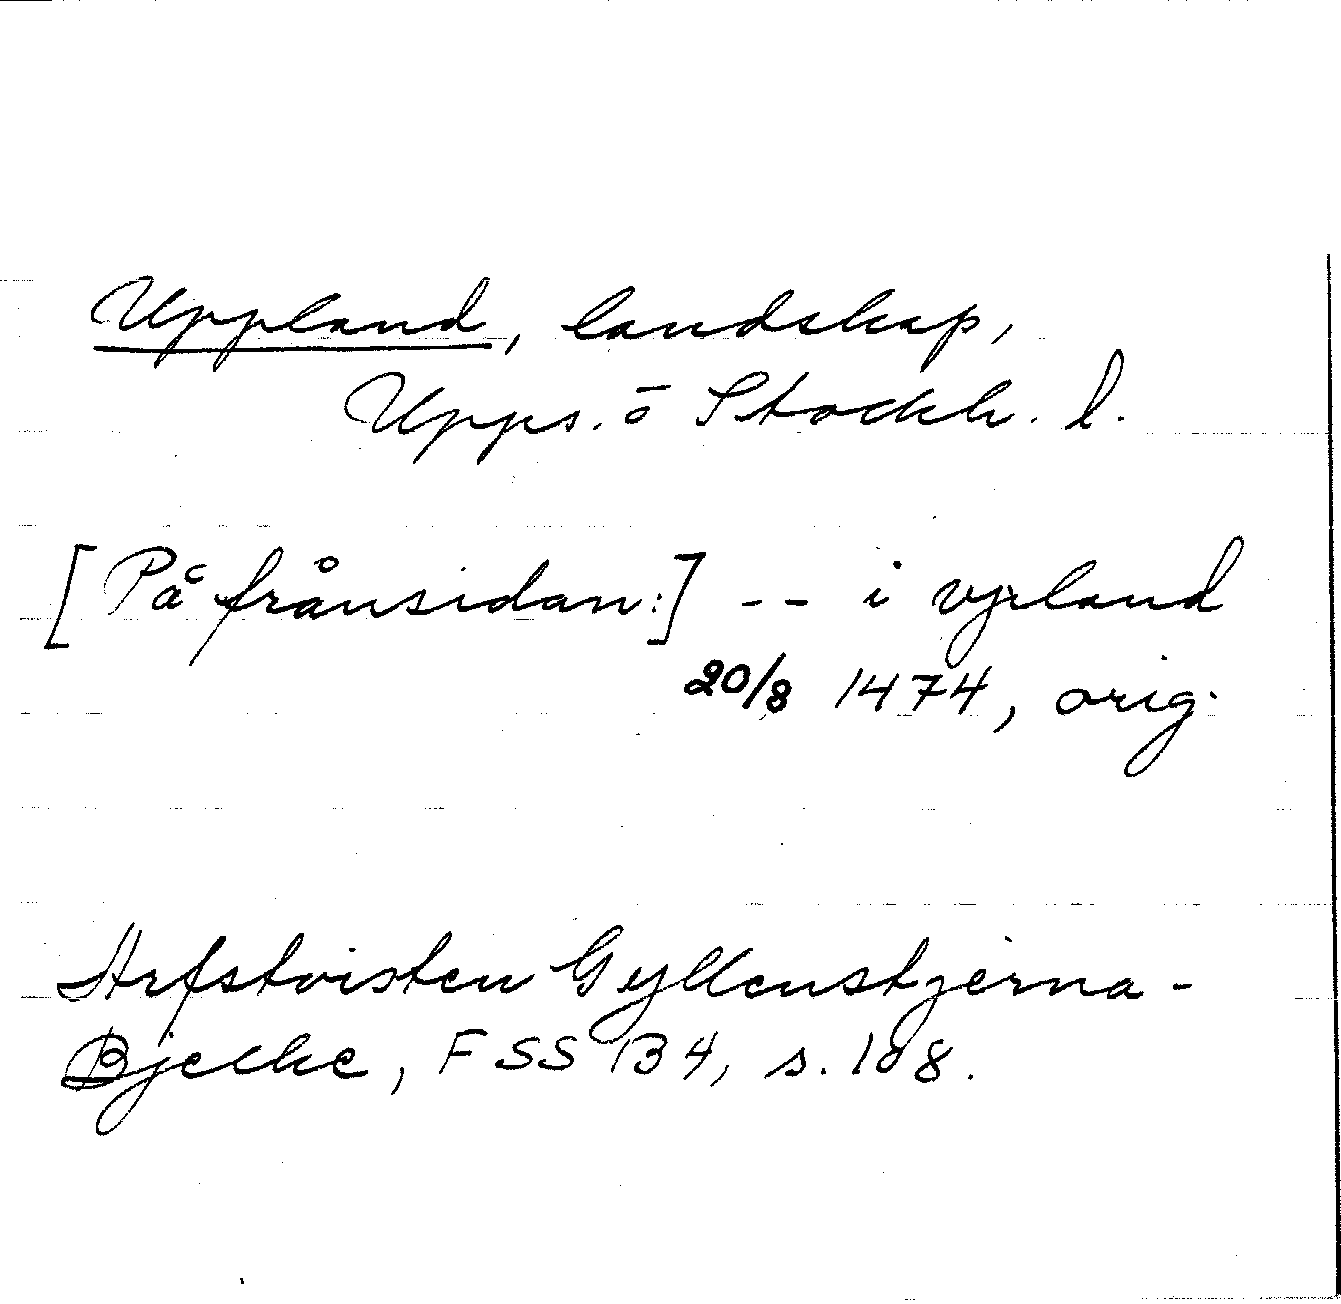 Uppland, landskap,
Upps. o Stockh. l.
[På frånsidan:] -- i vpland
20/8 1474, orig.
Arfstvisten Gyllenstjerna-
Bjelke, FSS B4, s. 108.